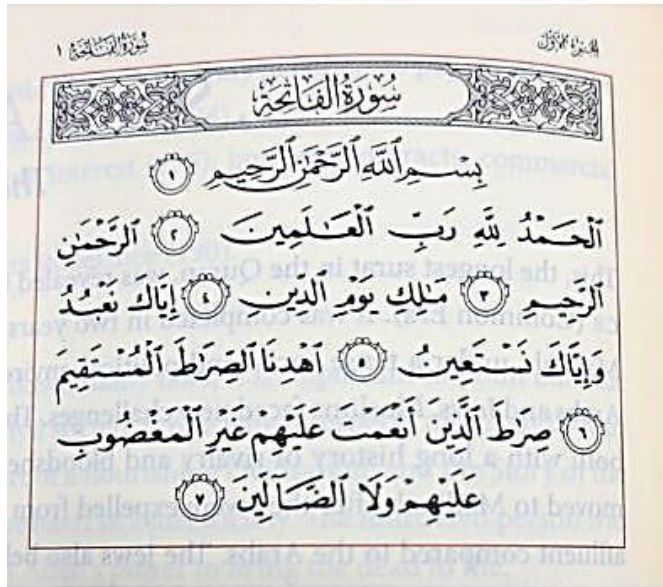 الجزء الأول
سُورَةُ الفَاتِحَةِ ١
سُورَةُ الفَاتِحَةِ
بِسْمِ ٱللَّهِ ٱلرَّحْمَٰنِ ٱلرَّحِيمِ ١
ٱلْحَمْدُ لِلَّهِ رَبِّ ٱلْعَٰلَمِينَ ٢ ٱلرَّحْمَٰنِ
ٱلرَّحِيمِ ٣ مَٰلِكِ يَوْمِ ٱلدِّينِ ٤ إِيَّاكَ نَعْبُدُ
وَإِيَّاكَ نَسْتَعِينُ ٥ ٱهْدِنَا ٱلصِّرَٰطَ ٱلْمُسْتَقِيمَ
٦ صِرَٰطَ ٱلَّذِينَ أَنْعَمْتَ عَلَيْهِمْ غَيْرِ ٱلْمَغْضُوبِ
عَلَيْهِمْ وَلَا ٱلضَّآلِّينَ ٧